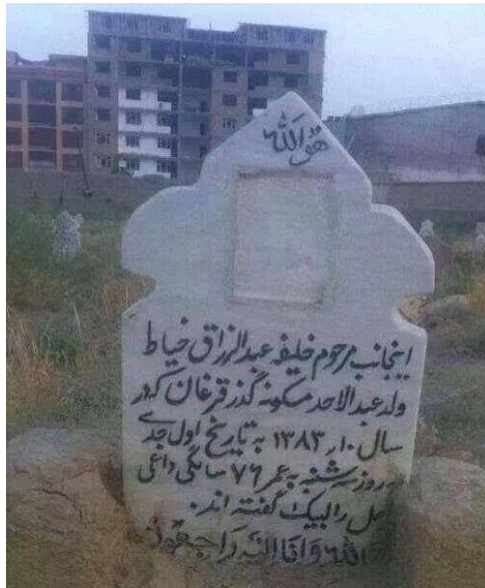 هو الله
اینجانب مرحوم خلیفه عبدالرزاق خیاط
ولد عبدالاحد مسکونه گذر قرغان که در
سال ۱۳۸۳٫۱۰ به تاریخ اول جدی
روز سه شنبه به عمر ۷۶ سالگی داعی
را لبیک گفته اند.
الله وانا الیه راجعون